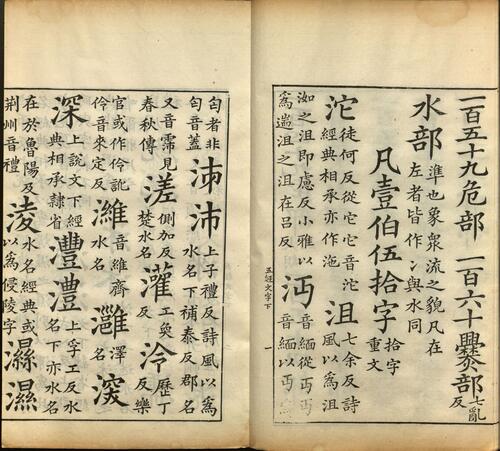 一百五十九危部 一百六十爨部七亂反
水部準也象衆流之貌凡在左者皆作氵與水同
凡壹伯伍拾字拾字重文
沱徒何反從它它音沱經典相承亦作池沮七余反詩風以爲沮
洳之沮即慮反小雅以爲遄沮之沮在呂反沔音緬從丏丏音緬以丏
五經文字下
一
匄者非匄音蓋泲沛上子禮反詩風以爲水名下補泰反郡名
又音霈見春秋傳溠側加反楚水名灌工奐反泠歷丁反樂
官或作伶訛伶音來定反濰音維齊水名灉澤名湥
深上說文下經典相承隸省灃澧上孚工反水名下亦水名
在於魯陽及荆州音禮淩水名經典或以爲侵陵字濕濕